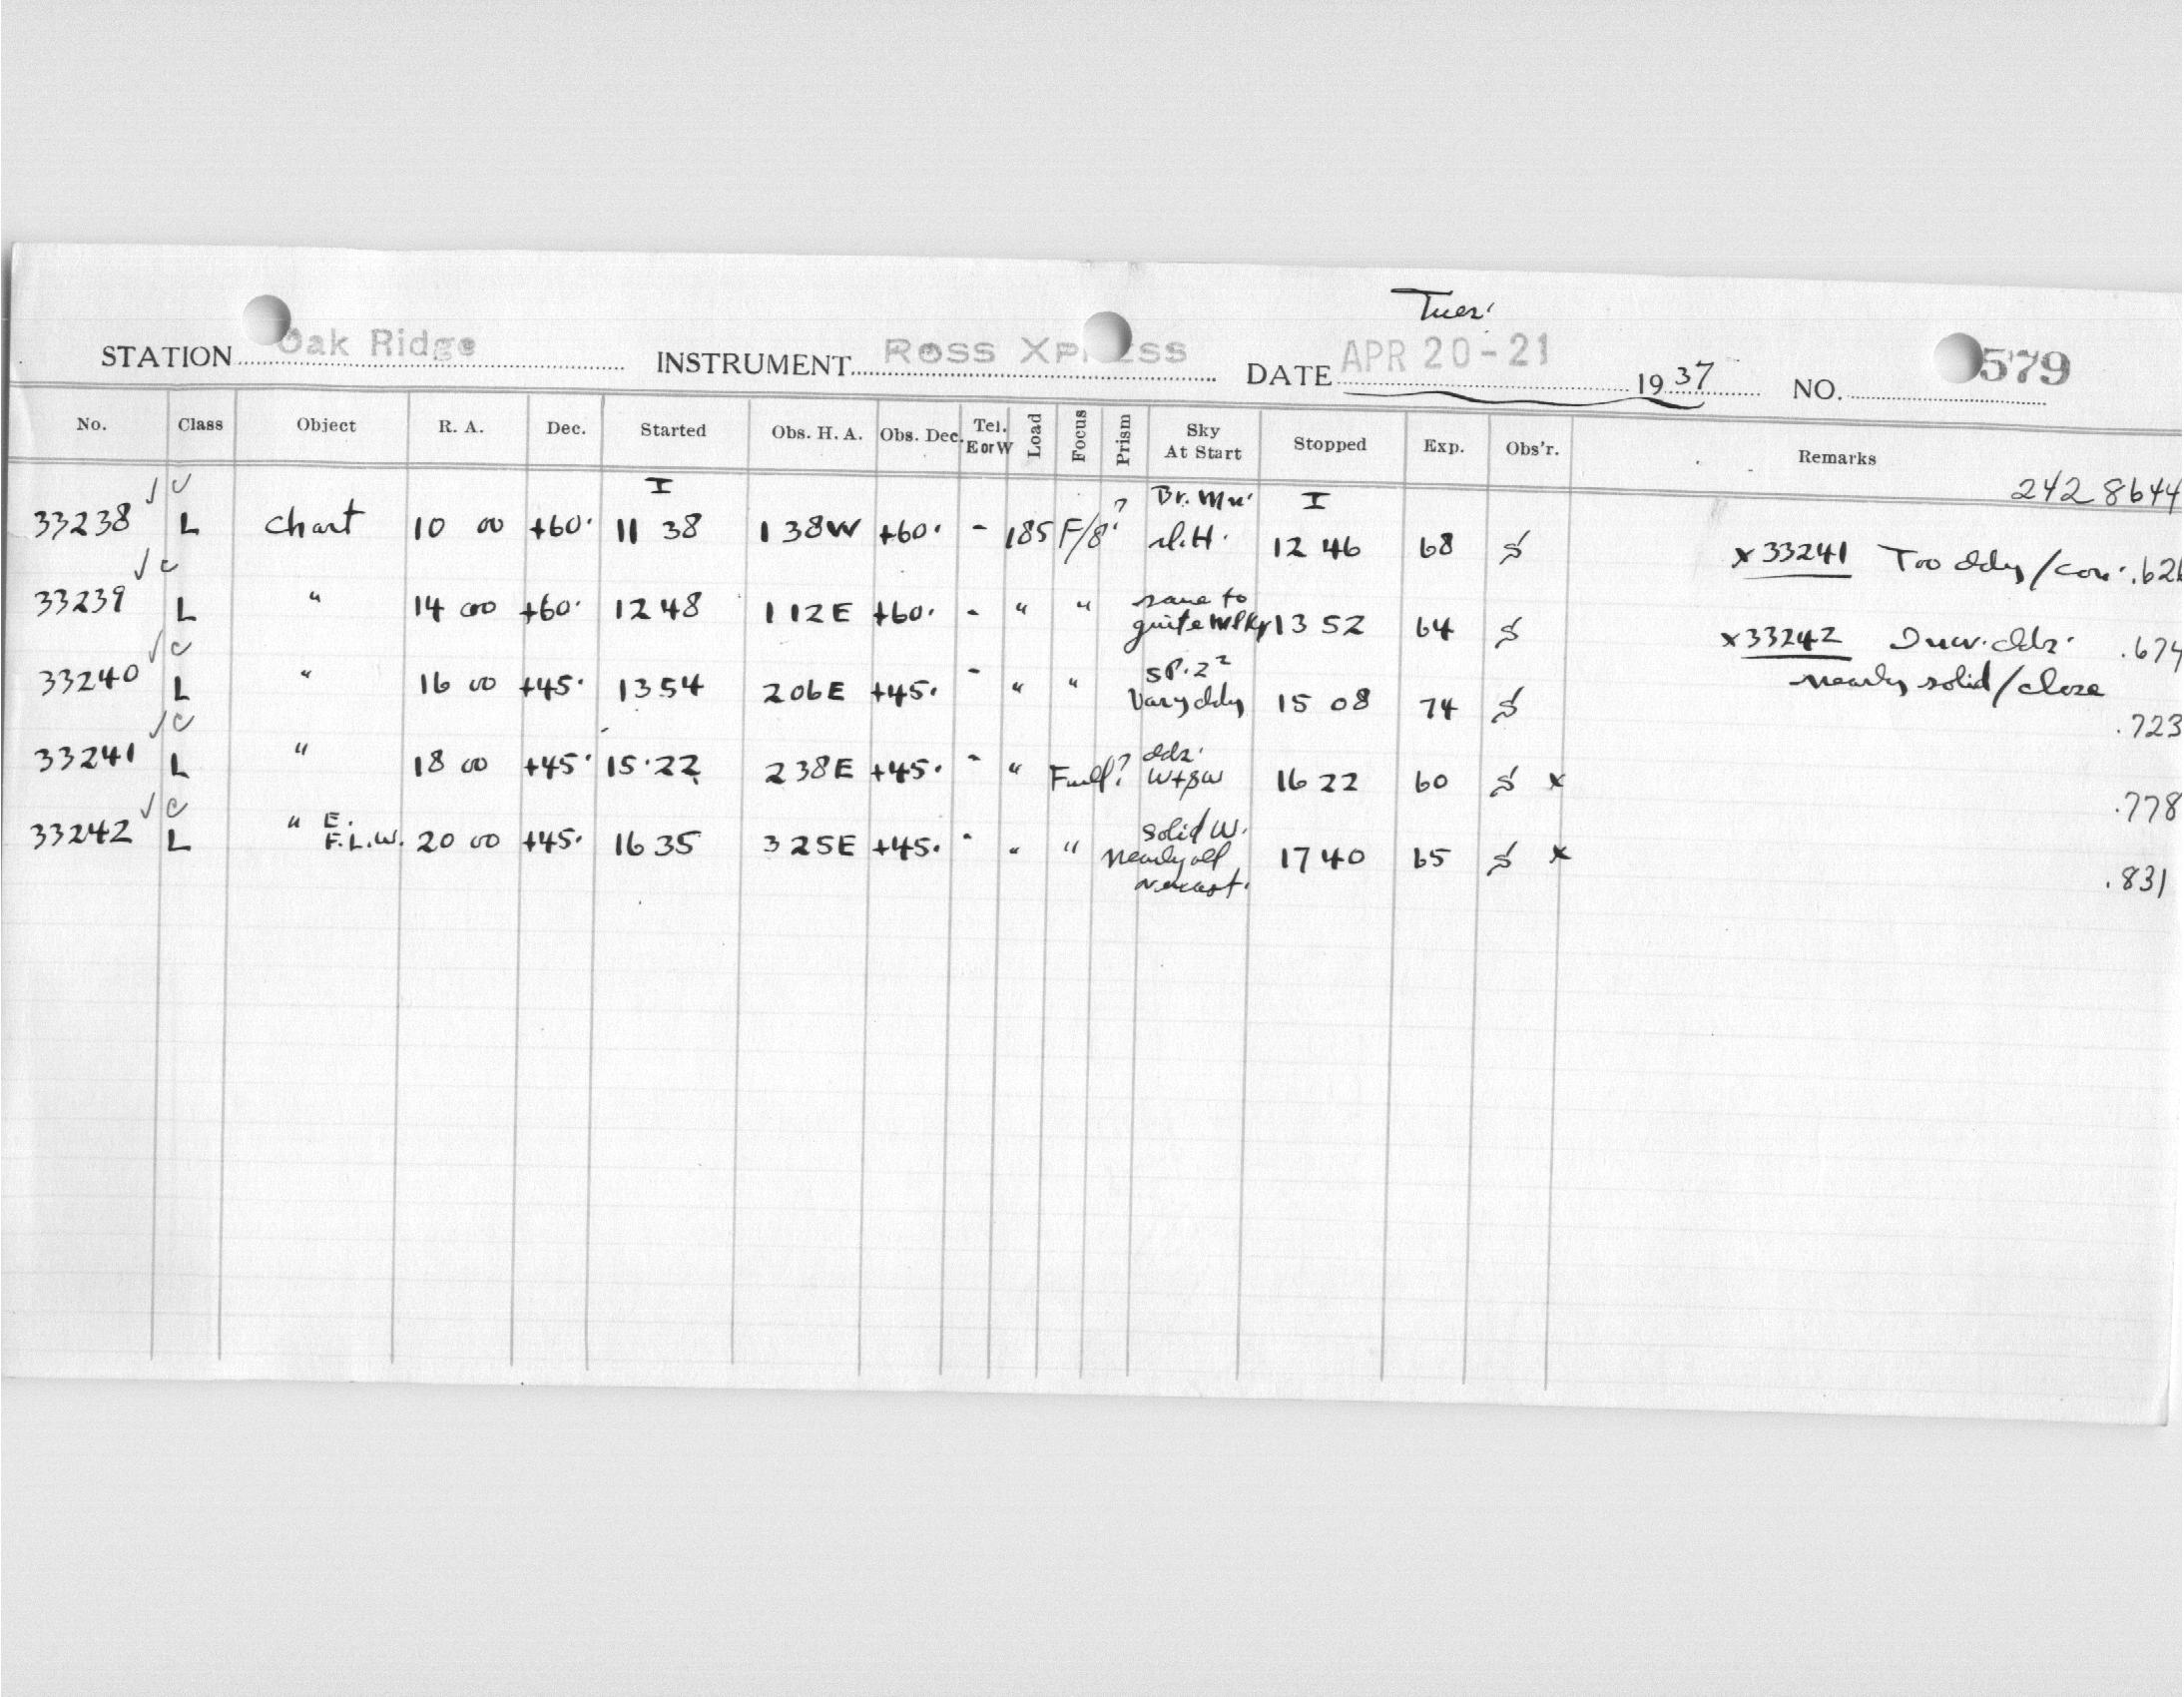 Tues.
STATION Oak Ridge INSTRUMENT Ross Xpress DATE APR 20-21 1937 NO. 579
No. Class Object R. A. Dec. Started Obs. H. A. Obs. Dec. Tel. E or W Load Focus Prism Sky At Start Stopped Exp. Obs'r. Remarks
242 8644
33238 ✓ c L Chart 10 00 +60. I 11 38 1 38W +60. - 185 F/8? Br. H. I 12 46 68 S
x 33241 Too cldy/con. .626
33239 ✓ c L " 14 00 +60. 12 48 1 12E +60. - " " same to quite mlky 13 52 64 S
x 33242 clds. .674
nearly solid/close
33240 ✓ c L " 16 00 +45. 13 54 2 06E +45. - " " Vary cldy 15 08 74 S
.723
33241 ✓ c L " 18 00 +45. 15.22 2 38E +45. - " Full? clds. W+SW 16 22 60 S x
.778
33242 ✓ c L " E. F.L.W. 20 00 +45. 16 35 3 25E +45. - " " Solid W. Nearly all overcast. 17 40 65 S x
.831